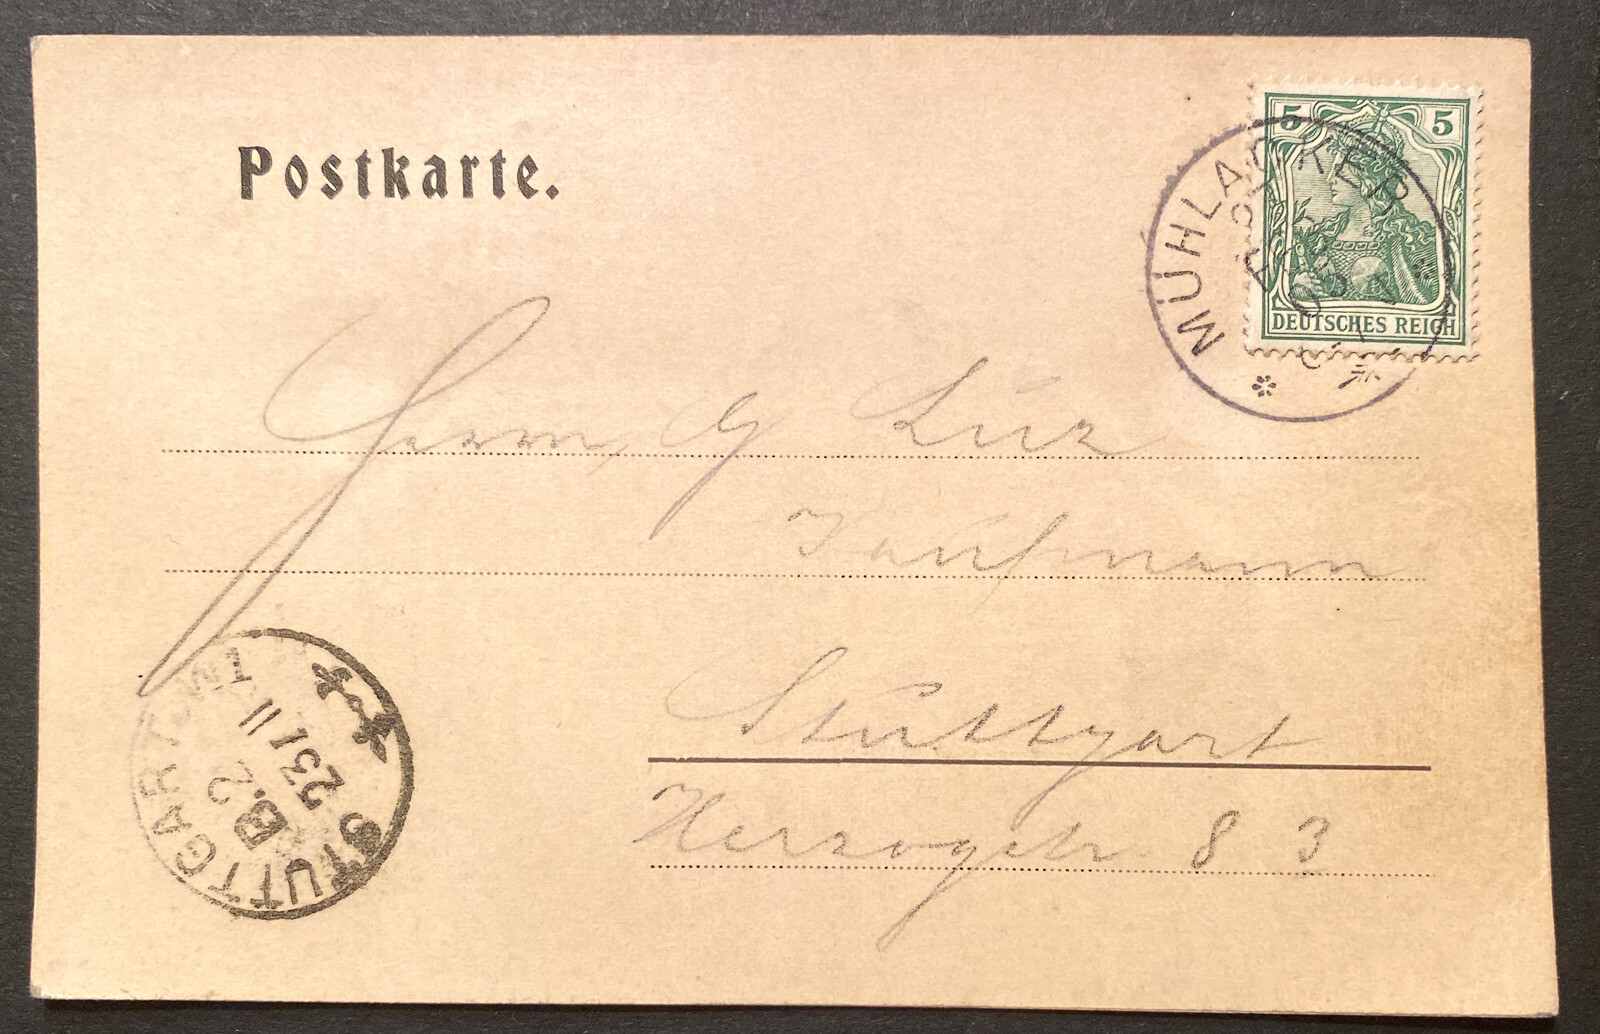 Postkarte.
5 5
DEUTSCHES REICH
MÜHLACKER
Herrn G Lutz
Kaufmann
Stuttgart
Herzogstr. 8 3
STUTTGART
B.2
23 I 11